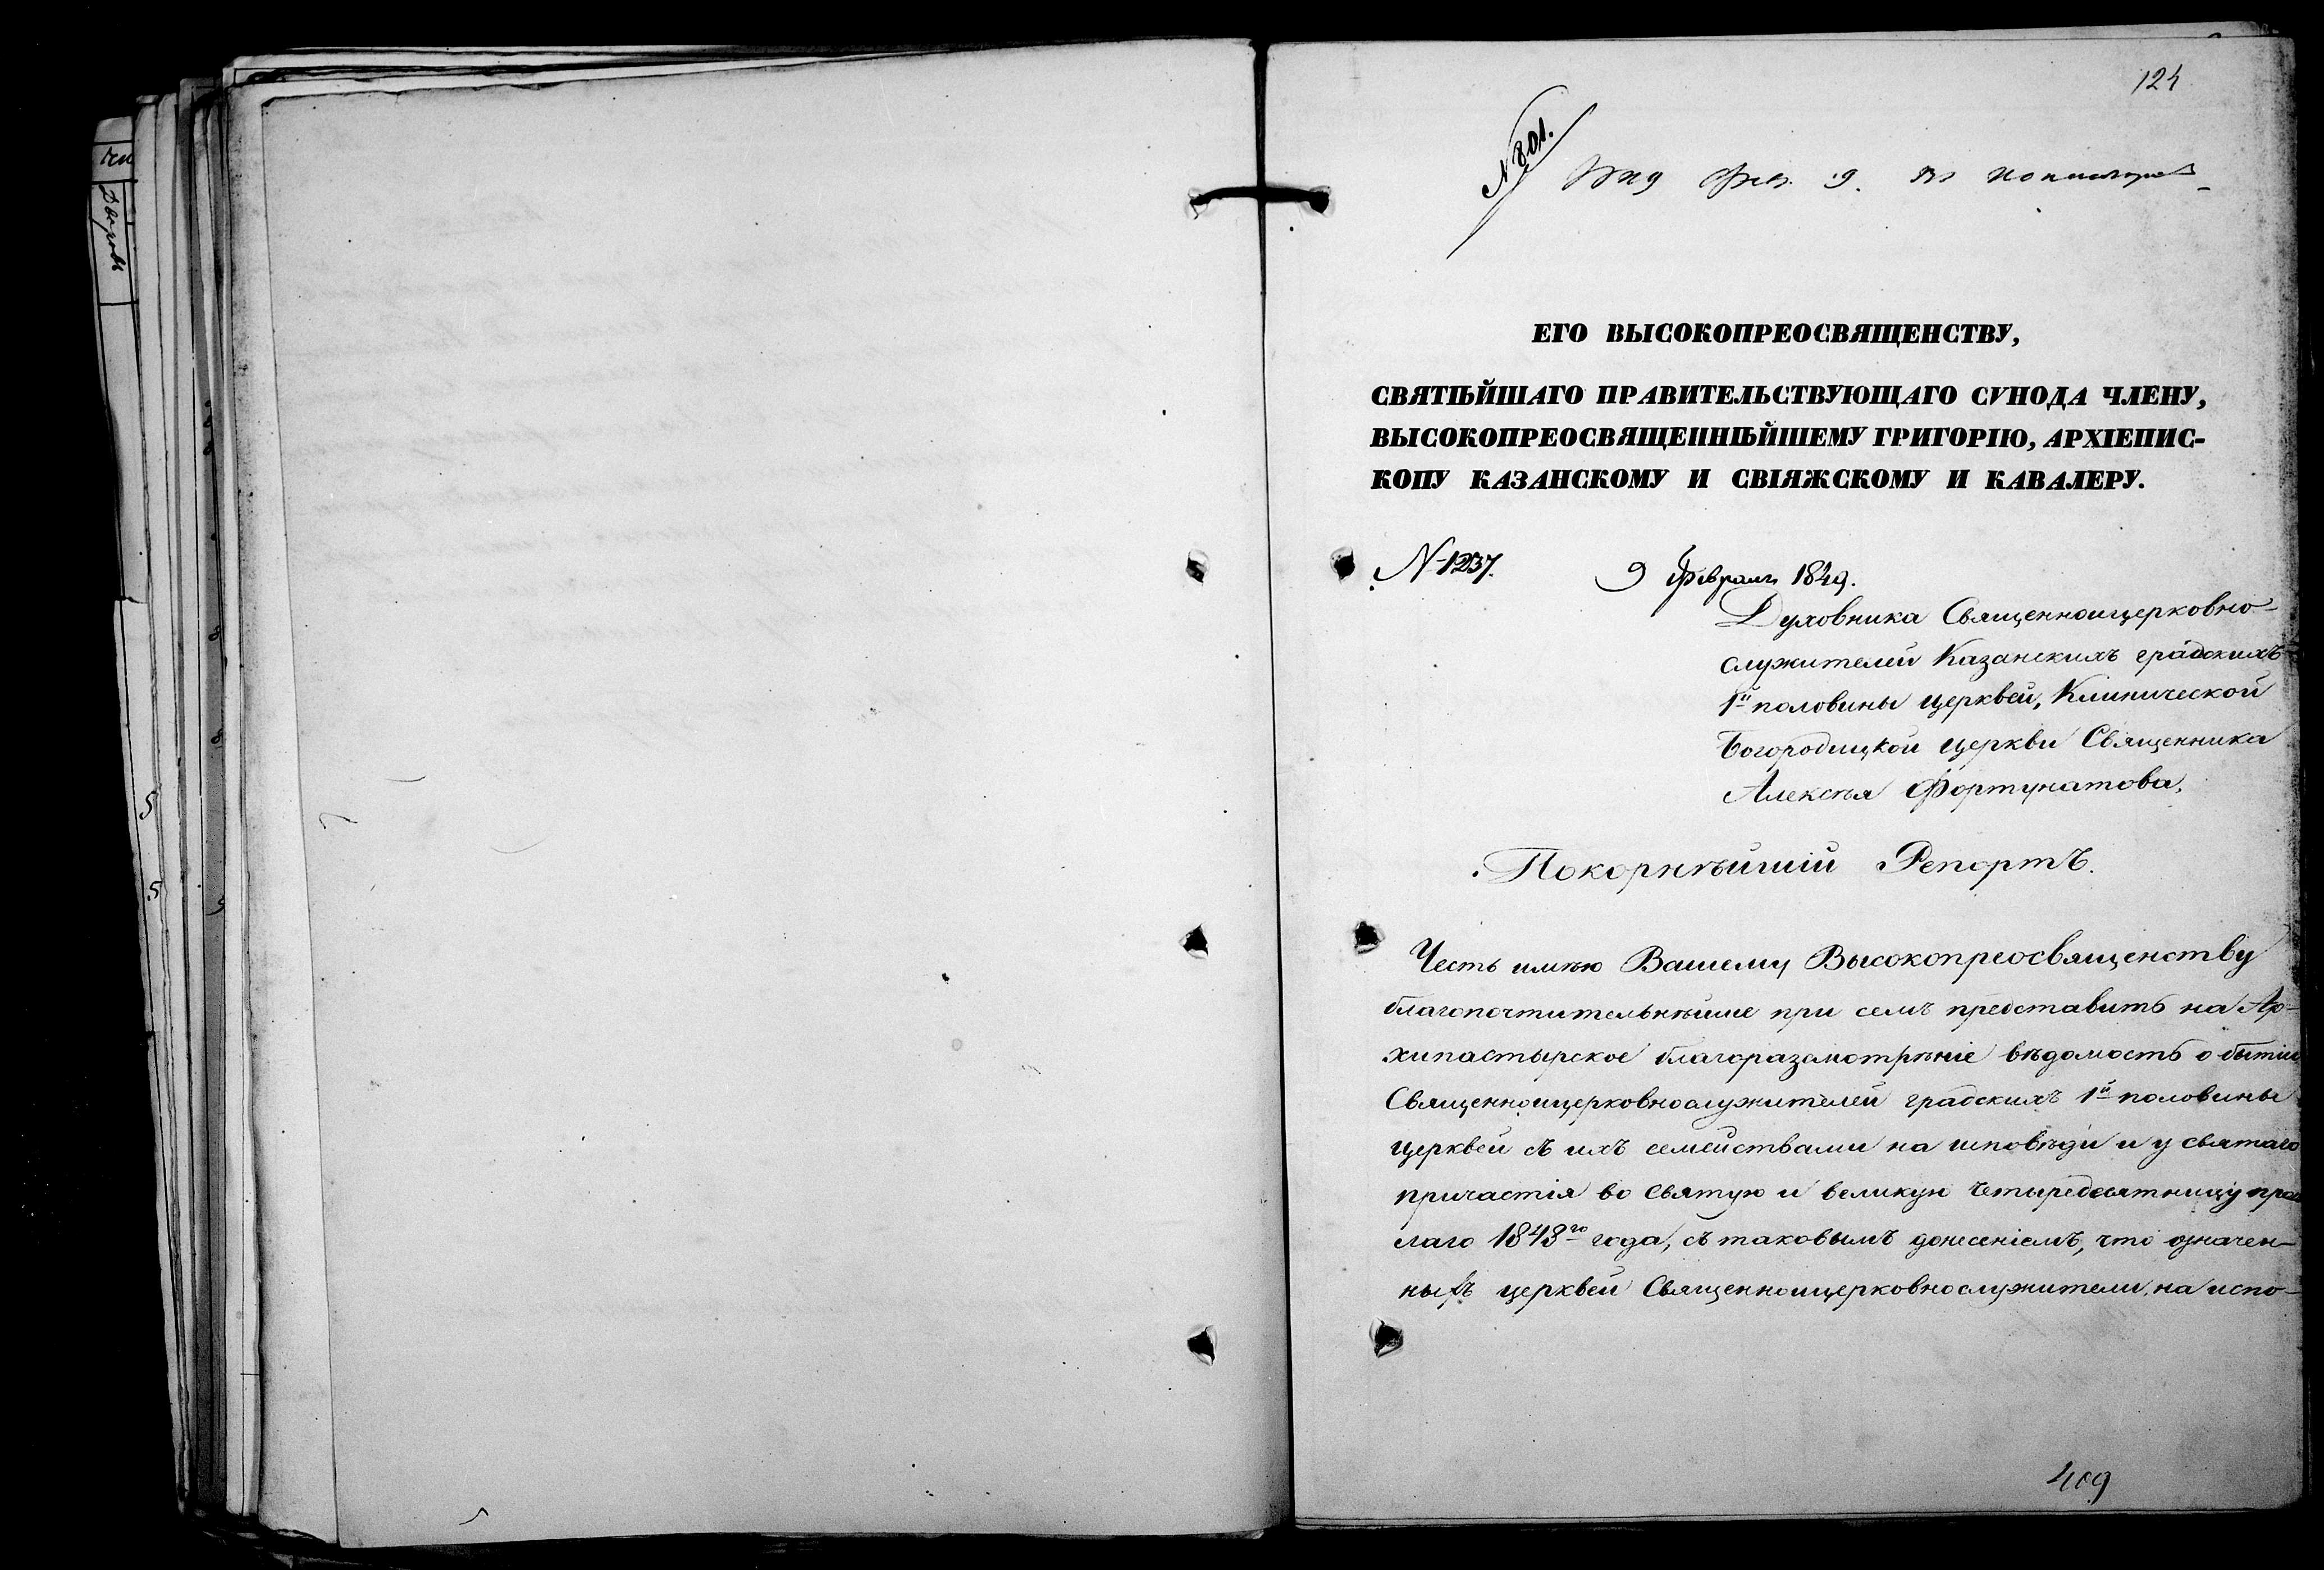 124
№ 801.
1849 Фев. 9. Въ консисторію
ЕГО ВЫСОКОПРЕОСВЯЩЕНСТВУ,
СВЯТѢЙШАГО ПРАВИТЕЛЬСТВУЮЩАГО СѴНОДА ЧЛЕНУ,
ВЫСОКОПРЕОСВЯЩЕННѢЙШЕМУ ГРИГОРІЮ, АРХІЕПИС-
КОПУ КАЗАНСКОМУ И СВІЯЖСКОМУ И КАВАЛЕРУ.
№ 1237. 9 Февраля 1849.
Духовника Священноицерковно-
служителей Казанскихъ градскихъ
1й половины церквей, Клинической
Богородицкой церкви Священника
Алексѣя Фортунатова.
Покорнѣйшій Репортъ.
Честь имѣю Вашему Высокопреосвященству
благопочтительнѣйше при семъ представить на Ар-
хипастырское благоразсмотрѣніе вѣдомость о бытіи
Священноицерковнослужителей градскихъ 1й половины
церквей съ ихъ семействами на исповѣди и у святаго
причастія во святую и великую четыредесятницу
лаго 1848го года, съ таковымъ донесеніемъ, что означен-
ныхъ церквей Священноицерковнослужители, на испо-
409
5
5